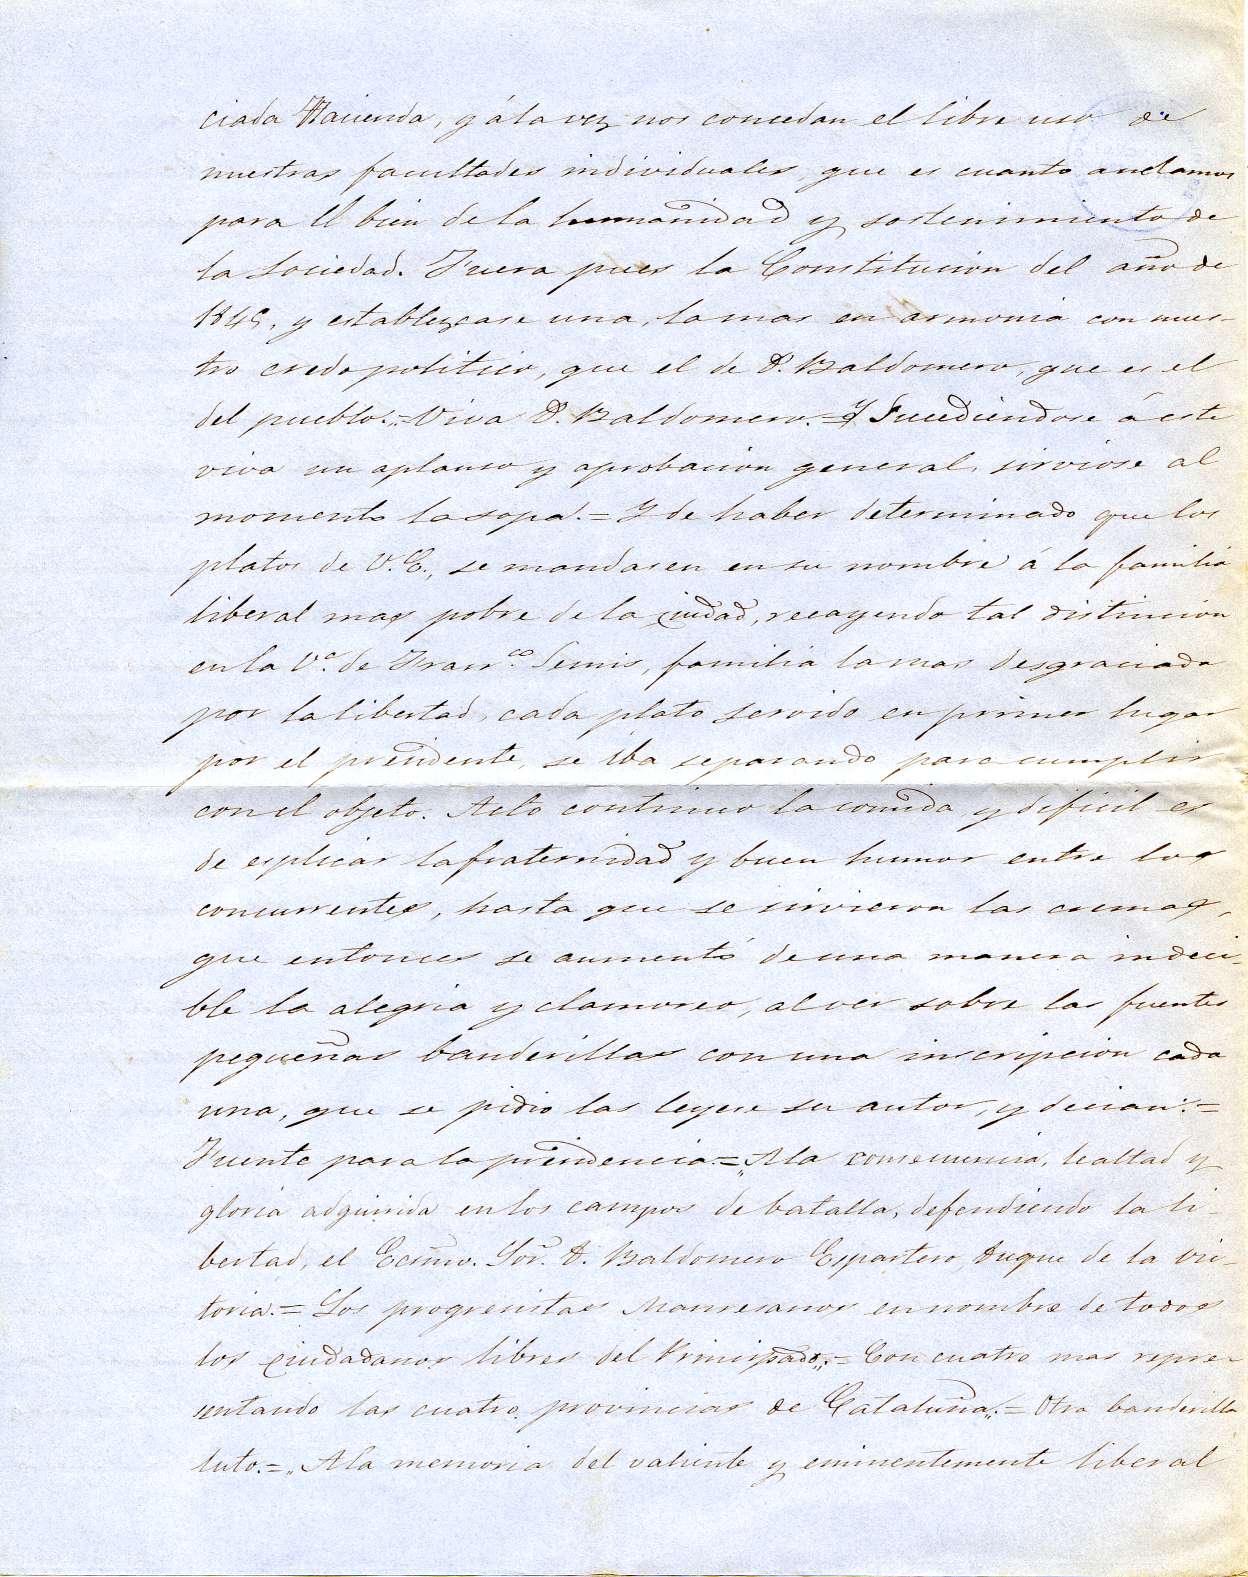 ciada Hacienda, y á la vez nos concedan el libre uso de
nuestras facultades individuales, que es cuanto anelamos
para el bien de la humanidad y sostenimiento de
la Sociedad. Fuera pues la Constitucion del año de
1845, y establezcase una, la mas en armonia con nues-
tro credo politico, que el de D. Baldomero, que es el
del pueblo.„=Viva D. Baldomero.=Y Sucediendose á este
viva un aplauso y aprobacion general, sirviose al
momento la sopa.=Y de haber determinado que los
platos de V.E., se mandasen en su nombre á la familia
liberal mas pobre de la ciudad, recayendo tal distincion
en la V.ª de Fran.co Semis, familia la mas desgraciada
por la libertad, cada plato servido en primer lugar
por el presidente, se iba separando para cumplir
con el objeto. Acto continuo la comida, y dificil es
de esplicar la fraternidad y buen humor entre los
concurrentes, hasta que se sirvieron las cremas,
que entonces se aumentó de una manera indeci-
ble la alegria y clamoreo, al ver sobre las fuentes
pequeñas banderillas con una inscripcion cada
una, que se pidio las leyese su autor, y decian:=
Fuente para la presidencia.=„A la consecuencia, lealtad y
gloria adquirida en los campos de batalla, defendiendo la li-
bertad, el Ecmo. Sor. D. Baldomero Espartero, Duque de la Vic-
toria.=Los progresistas Manresanos en nombre de todos
los ciudadanos libres del Principado„.=Con cuatro mas repre-
sentando las cuatro provincias de Cataluña„.=Otra banderilla
luto.=„A la memoria del valiente y eminentemente liberal